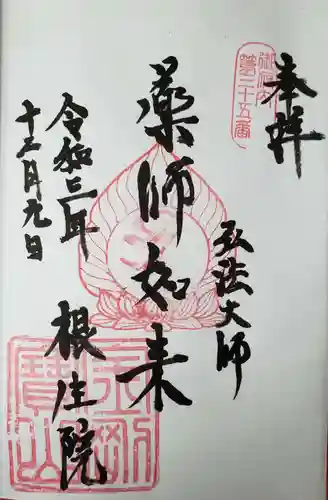 奉拝
御府内
第三十五番
弘法大師
薬師如来
令和三年
十二月九日
根生院
金剛
寳山